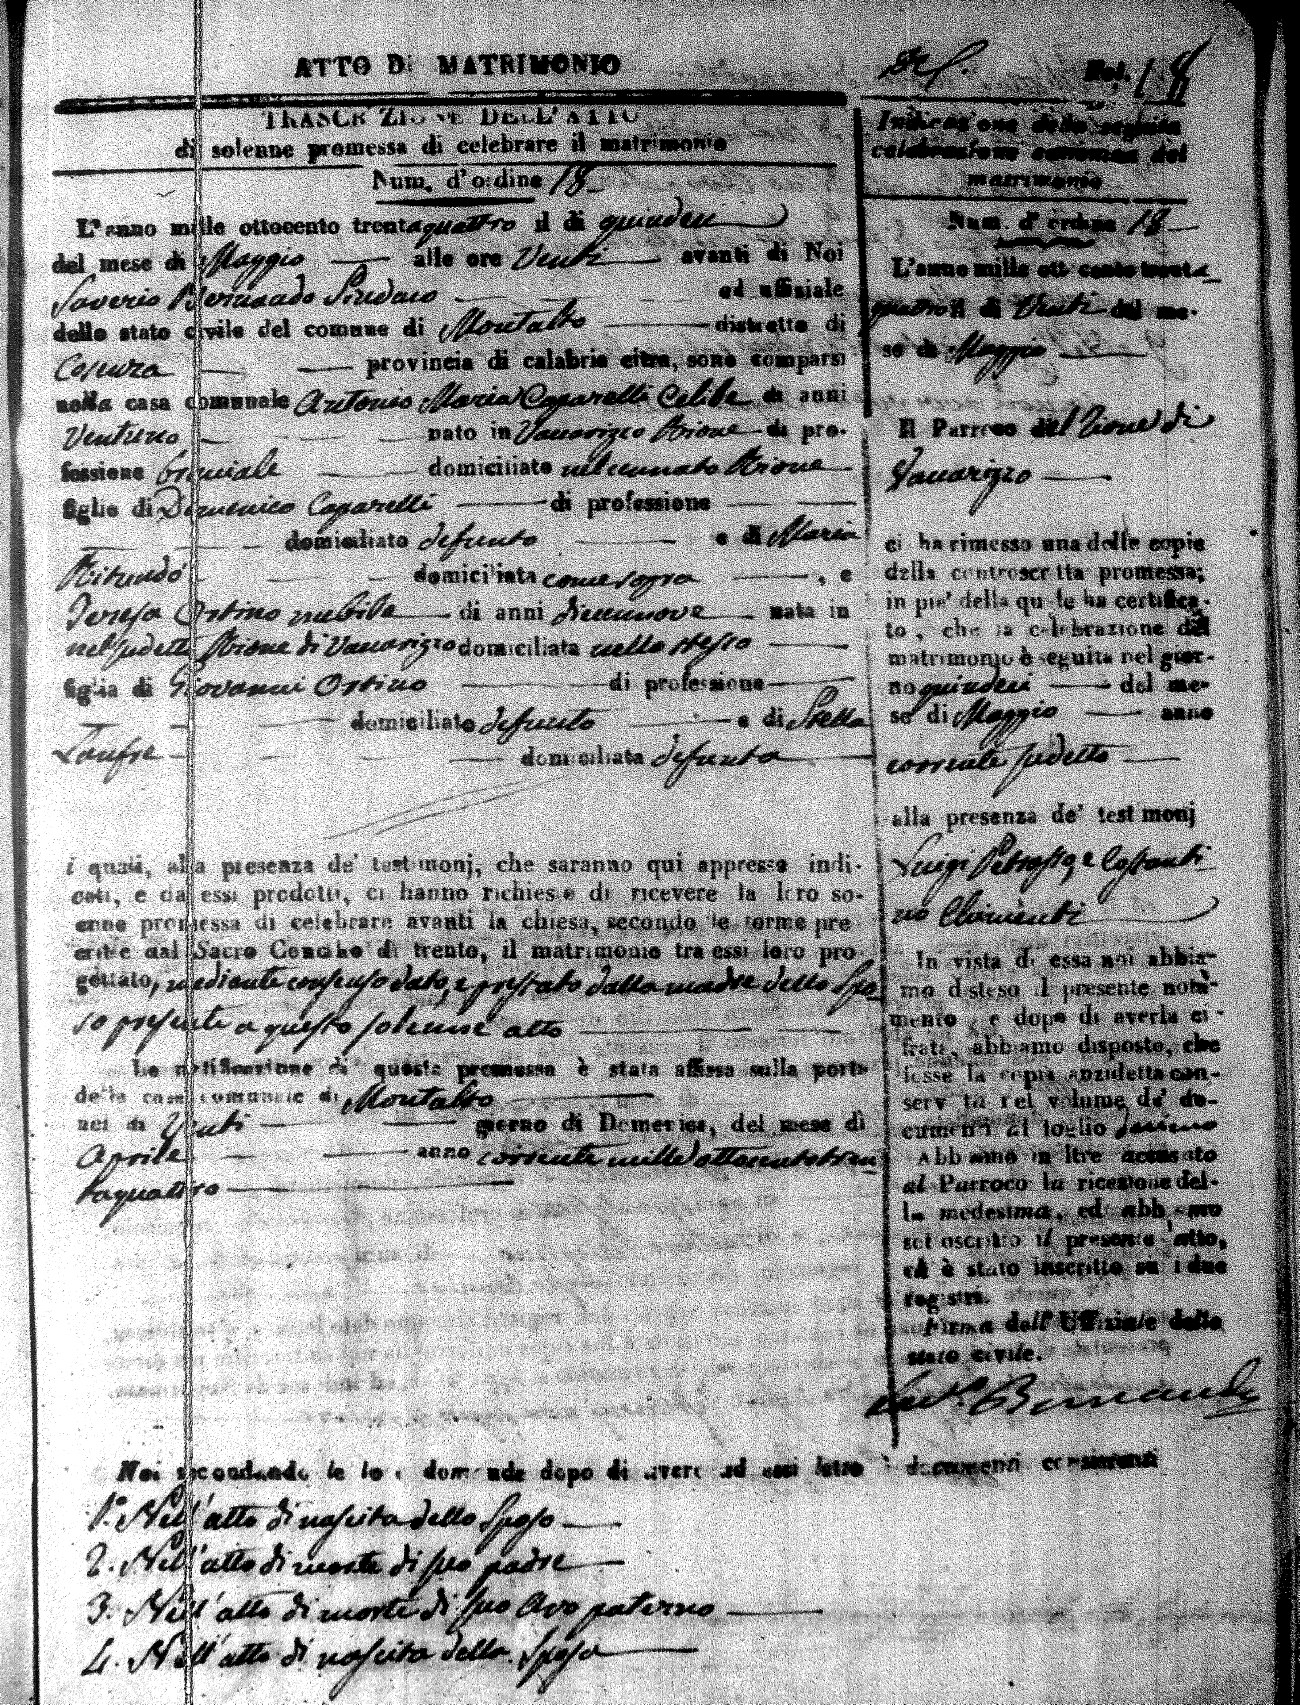 ATTO DI MATRIMONIO
TRASCRIZIONE DELL'ATTO
di solenne promessa di celebrare il matrimonio
Num. d'ordine 18
L'anno mille ottocento trentaquattro il dì quindeci
del mese di Maggio alle ore Venti avanti di Noi
Saverio Bernaudo Sindaco ed uffiziale
dello stato civile del comune di Montalto distretto di
Cosenza provincia di calabria citra, sono comparsi
nella casa comunale Antonio Maria Caparelli Celibe di anni
Ventuno nato in Vaccarizzo Rione di pro-
fessione domiciliato nel cennato Rione
figlio di Domenico Caparelli di professione
domiciliato defunto e di Maria
domiciliata come sopra , e
Teresa Orsino nubile di anni diecinnove nata in
nel sudetto Rione di Vaccarizzo domiciliata nello stesso
figlia di Giovanni Orsino di professione
domiciliato defunto e di Stella
domiciliata defunta
i quali, alla presenza de' testimonj, che saranno qui appresso indi-
cati, e da essi prodotti, ci hanno richiesto di ricevere la loro so-
enne promessa di celebrare avanti la chiesa, secondo le forme pre
critte dal Sacro Concilio di trento, il matrimonio tra essi loro pro
gettato, mediante consenso dato, e prestato dalla madre dello Spo
so presente a questo solenne atto
La notificazione di questa promessa è stata affissa sulla porta
della casa comunale di Montalto
nel dì Venti giorno di Domenica, del mese di
Aprile anno corrente mille ottocentotren
taquattro
Noi secondando le loro domande dopo di avere ad essi letto i documenti consistenti
1.° Nell'atto di nascita dello Sposo
2. Nell'atto di morte di suo padre
3. Nell'atto di morte di suo Avo paterno
4. Nell'atto di nascita della Sposa
Fol. 18
Indicazione della seguita
celebrazione canonica del
matrimonio
Num. d'ordine 18
L'anno mille ott cento trenta
quattro il dì Venti del me-
se di Maggio
Il Parroco del Rione di
Vaccarizzo
ci ha rimesso una delle copie
della controscritta promessa;
in pie' della quale ha certifica-
to, che la celebrazione del
matrimonio è seguita nel gior-
no quindeci del me-
se di Maggio anno
corrente sudetto
alla presenza de' testimonj
Luigi Petrasso, e Costanti
no Chimenti
In vista di essa noi abbia-
mo disteso il presente noti-
mento, e dopo di averla ci-
frata, abbiamo disposto, che
fosse la copia anzidetta con-
servata nel volume de' do-
cumenti al foglio
Abbiamo inoltre accusato
al Parroco la ricezione del-
la medesima, ed abbiamo
sottoscritto il presente atto,
ed è stato inscritto su i due
registri.
Firma dell'Uffiziale dello
stato civile.
Sav.° Bernaudo